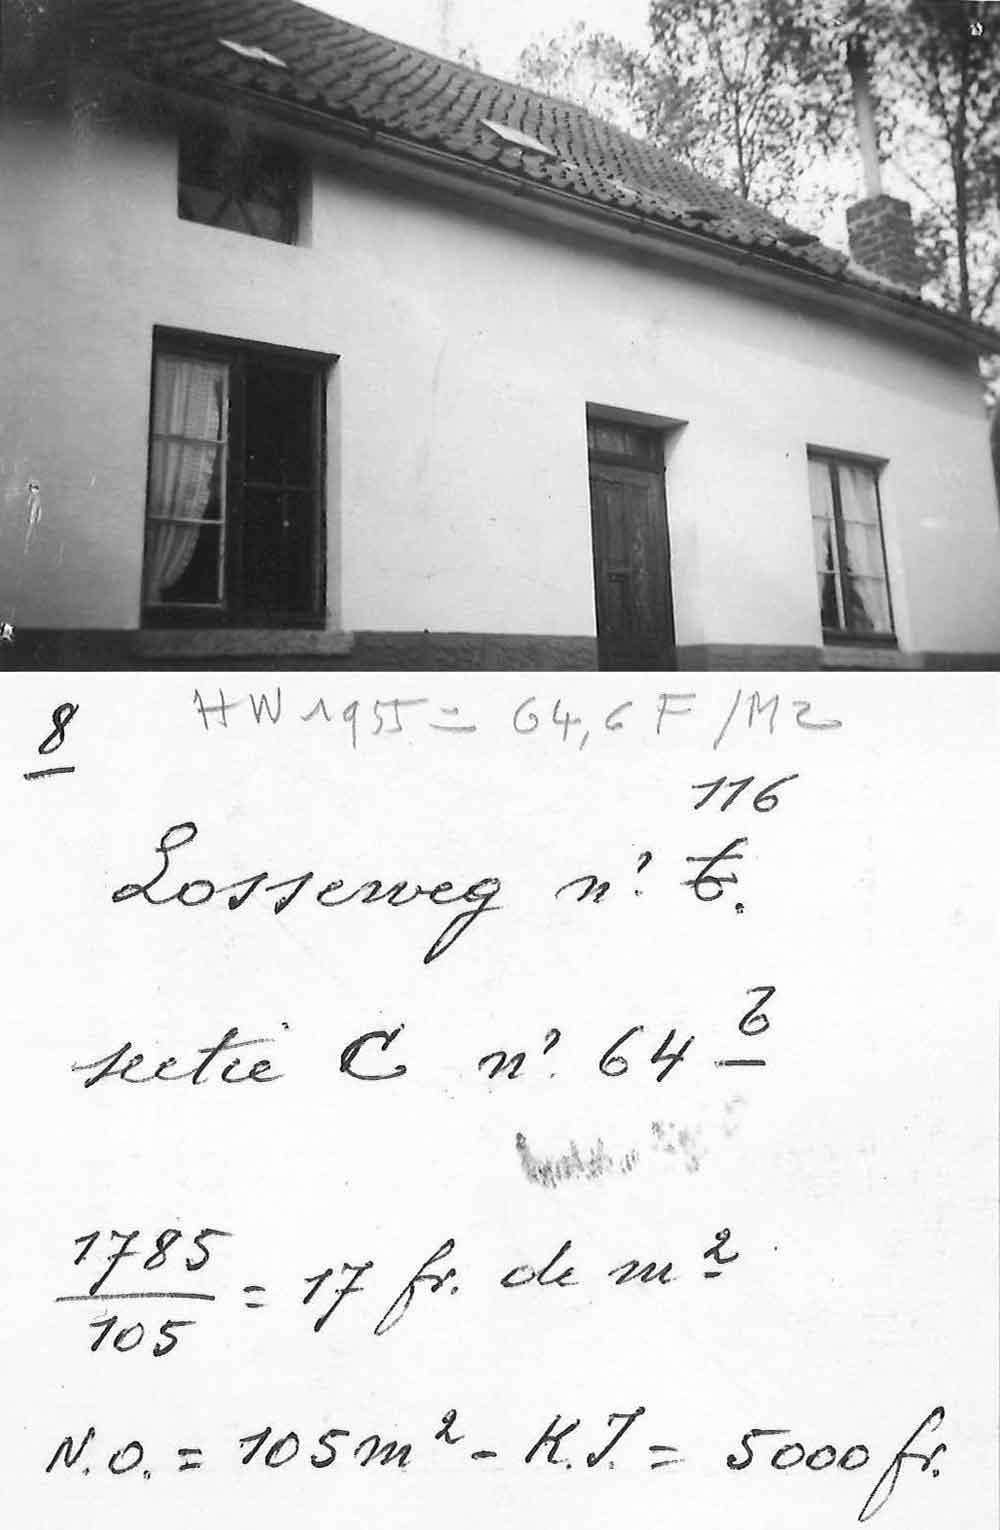 8
HW 1955 = 64,6 F/M2
116
Losseweg n°. 6.
sectie C n° 64 b
1785
105
= 17 fr. de m²
N.O. = 105 m² - K.I. = 5000 fr.